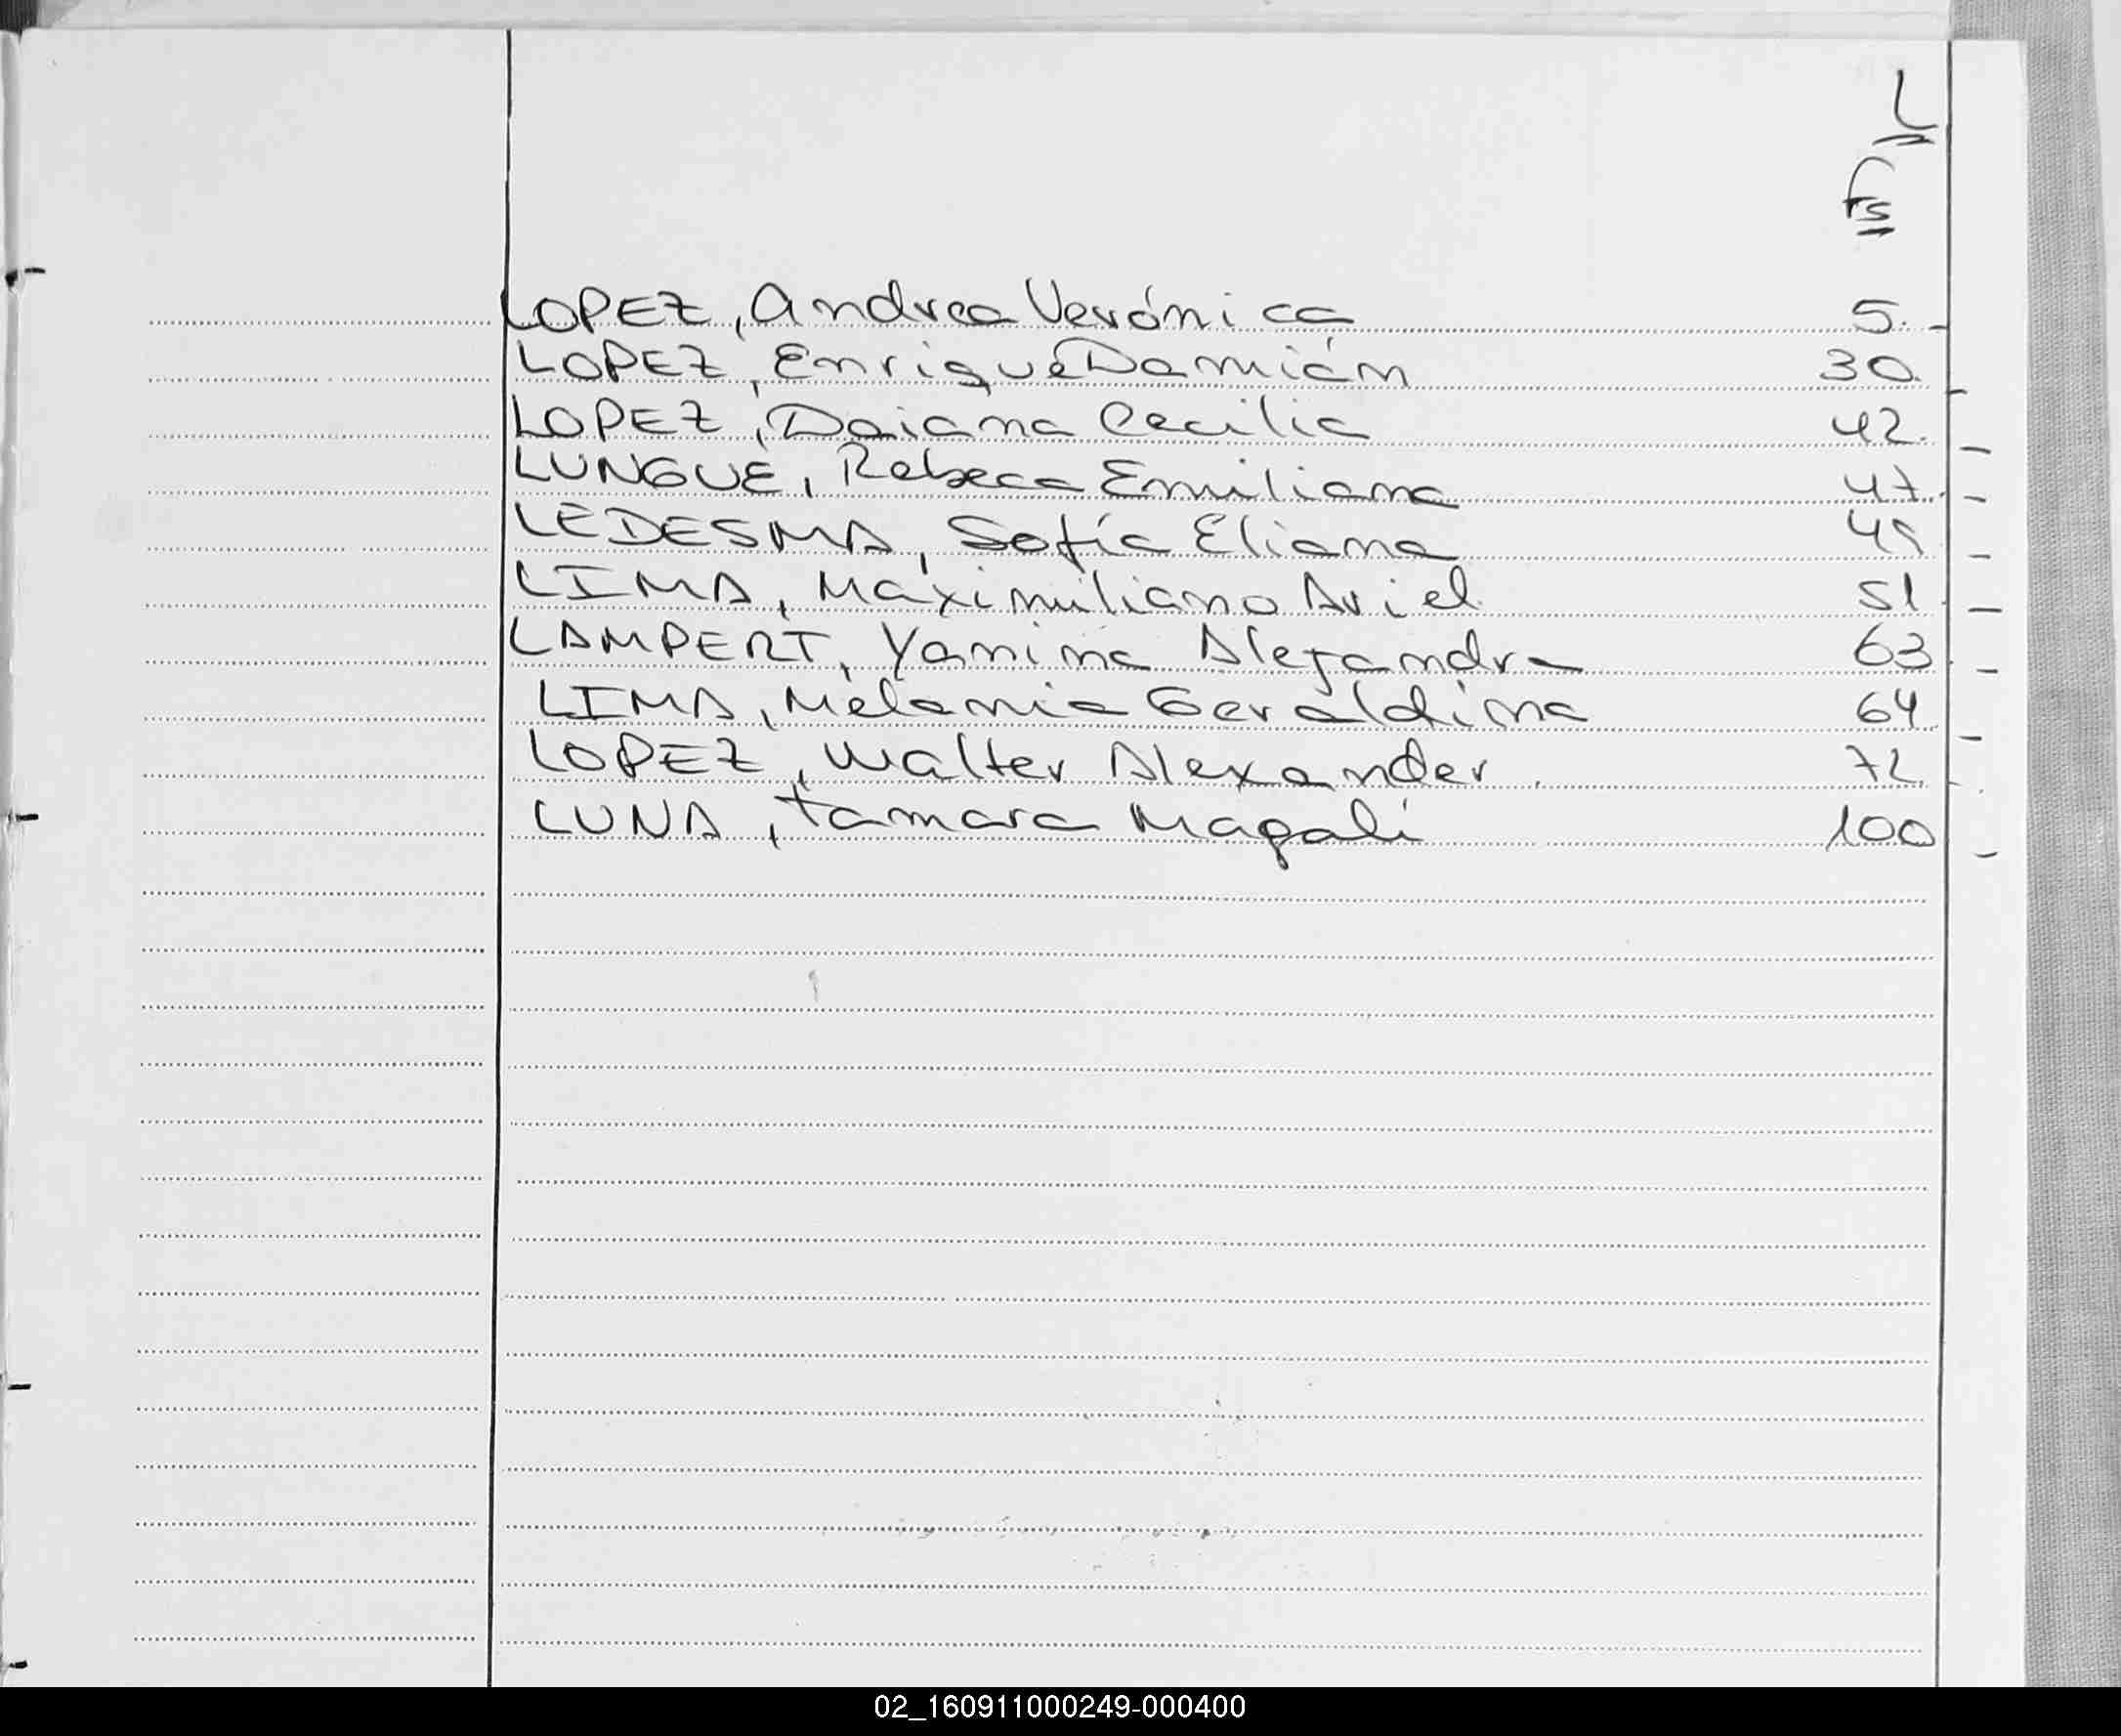 L
Fs
LOPEZ, Andrea Verónica 5.
LOPEZ, Enrique Damián 30.
LOPEZ, Daiana Cecilia 42.
LUNGUE, Rebeca Emiliana 47.
LEDESMA, Sofía Eliana
LIMA, Maximiliano Ariel 51.
LAMPERT, Yanina Alejandra 63.
LIMA, Melania Geraldina 64.
LOPEZ, Walter Alexander 72.
LUNA, Tamara Magalí 100
02_160911000249-000400